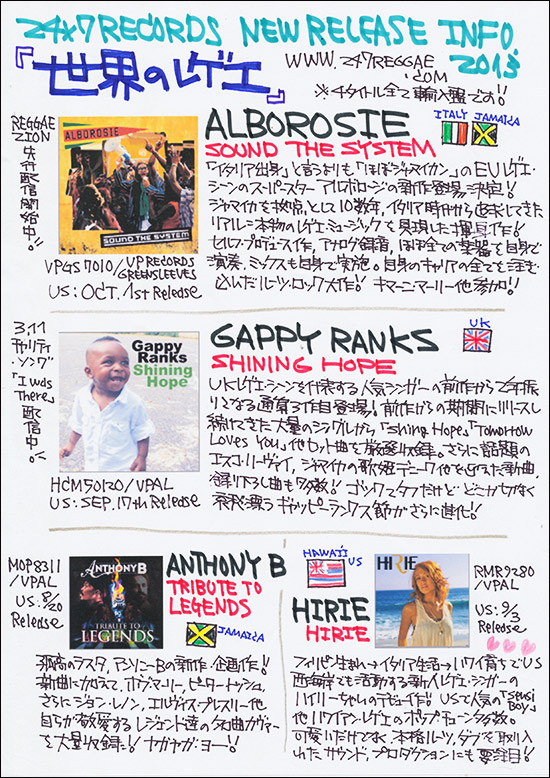 24x7 RECORDS NEW RELEASE INFO
2013
『世界のレゲエ』
WWW.247REGGAE
.COM
※4タイトル全て輸入盤です!
REGGAE
ZION
先行配信開始中!!
ALBOROSIE
SOUND THE SYSTEM
VPGS7010/VP RECORDS
GREENSLEEVES
US:OCT. 1st Release
ALBOROSIE
SOUND THE SYSTEM
ITALY JAMAICA
「イタリア出身」と言うよりも「ほぼジャマイカン」のEUレゲエ・
シーンのスーパースター アルボロージの新作登場決定!!
ジャマイカを拠点として10数年、イタリア時代から追求してきた
リアルに本物のレゲエ・ミュージックを具現した爆裂作!!
セルフ・プロデュース作、アナログ録音、ほぼ全ての楽器を自身で
演奏、ミックスも自身で実施。自身のキャリアの全てを注ぎ
込んだルーツ・ロック大作!! キマーニ・マーリー他参加!!
3.11
チャリティ
・ソング
「I was
There」
配信中!!
Gappy
Ranks
Shining
Hope
HCM50120/VPAL
US:SEP.17th Release
GAPPY RANKS
SHINING HOPE
UK
UKレゲエ・シーンを代表する人気シンガーの前作から2年振
りとなる通算3作目登場! 前作からの期間にリリースし
続けてきた大量のシングルから「Shining Hope」「Tomorrow
Loves You」他ヒット曲を厳選収録。さらに話題の
エスコ・リーヴァイ、ジャマイカの歌姫デニーク他を迎えた新曲、
録り下ろし曲も多数! ゴツくてタフだけど どこか切なく
哀愁漂う ギャッピー・ランクス節がさらに進化!
MOP8311
/VPAL
US:8/20
Release
ANTHONY B
TRIBUTE TO
LEGENDS
ANTHONY B
TRIBUTE TO
LEGENDS
JAMAICA
孤高のラスタ、アンソニーBの新作・企画作!!
新曲に加えて、ボブ・マーリー、ピーター・トッシュ、
さらにジョン・レノン、エルヴィス・プレスリー他
自らが敬愛するレジェンド達の名曲カヴァー
を大量収録!! ヤガヤガ・ヨー!!
HAWAII
US
HIRIE
HIRIE
HIRIE
RMR9280
/VPAL
US:9/2
Release
フィリピン生まれ→イタリア生活→ハワイ育ちでUS
西海岸でも活動する新人レゲエ・シンガーの
ハイリーちゃんのデビュー作!! USで人気の「Sensi
Boy」他ハワイアン・レゲエのポップチューン多数。
可愛いだけでなく、本格ルーツ、ダブを取り入
れたサウンド、プロダクションにも要注目!